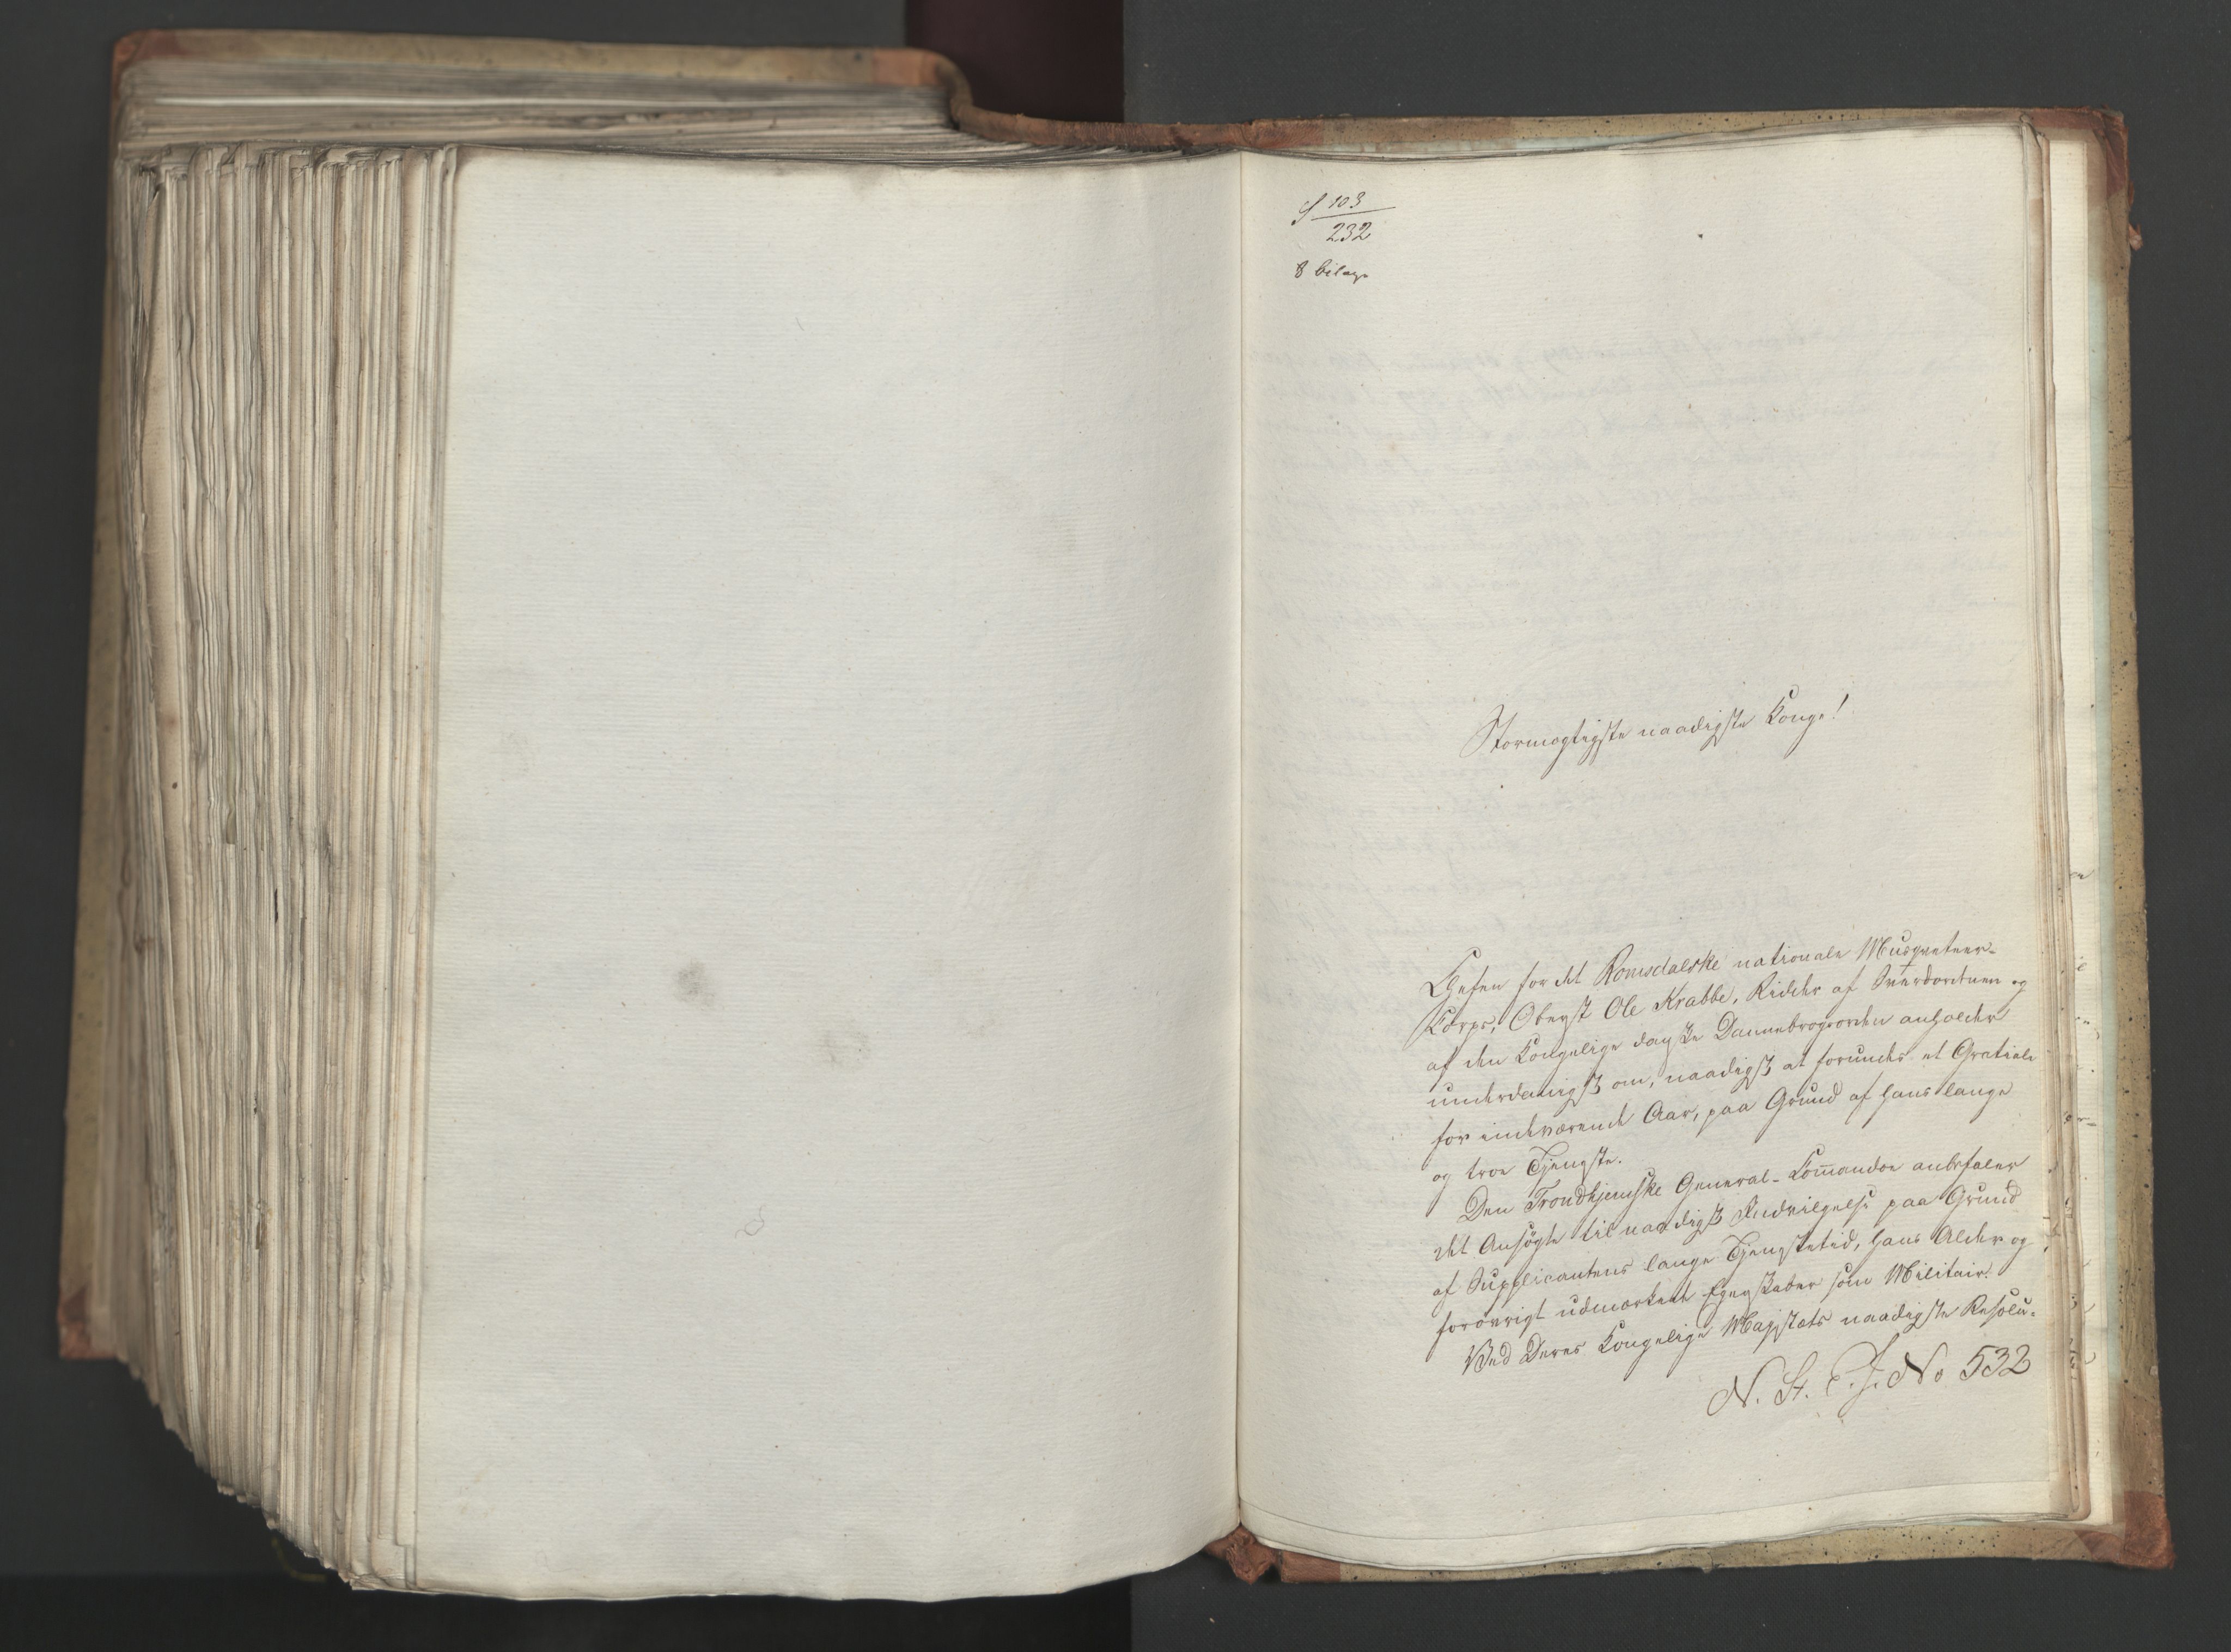 S 103
232
8 bilage
Stormægtigste naadigste Konge!
Chefen for det Romsdalske nationale Musqueteer-
Corps, Oberst Ole Krabbe, Ridder af Sværdordenen og
af den Kongelige danske Dannebrogsorden anholder
underdanigst om, naadigst at forundes et Gratiale
for indeværende Aar, paa Grund af hans lange
og troe Tjeneste.
Den Trondhjemske General-Com̅andoe anbefaler
det Ansøgte til naadigst Indvilgelse paa Grund
af Supplicantens lange Tjenestetid, hans Alder og
forøvrigt udmærkede Egenskaber som Militair.
Ved Deres Kongelige Majestæts naadigste Resolu-
N. St. C. J. No 532